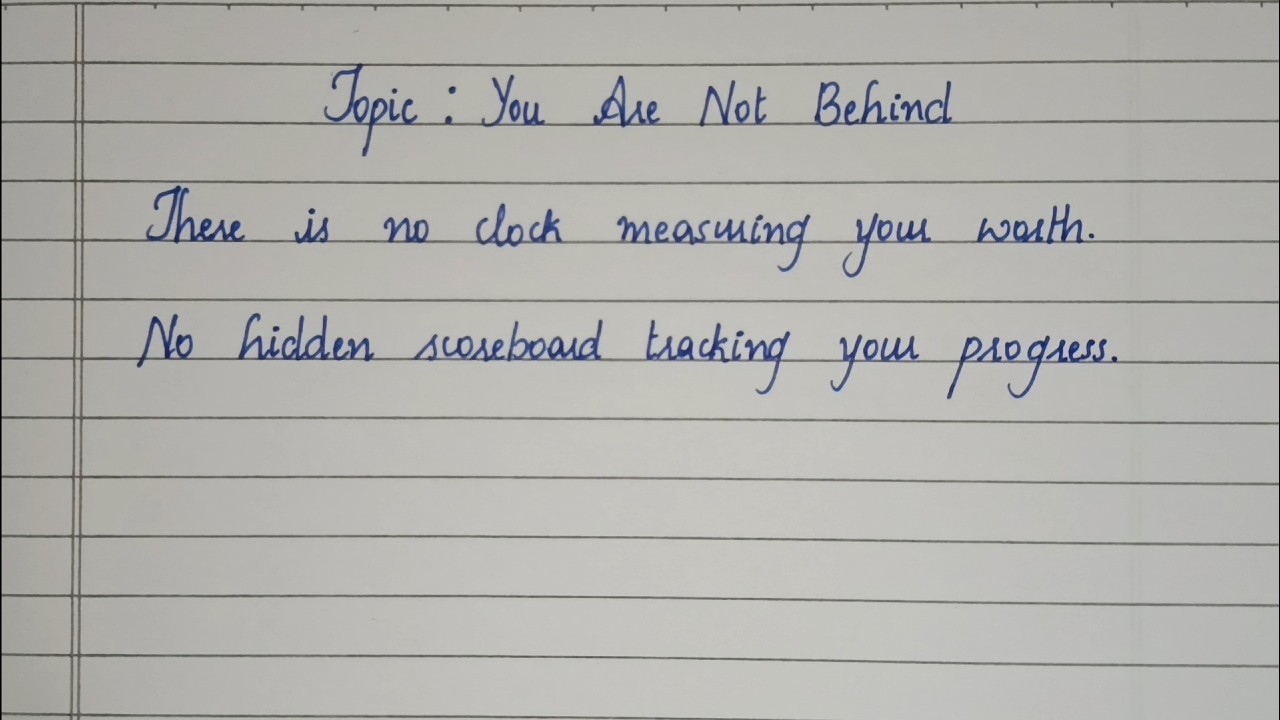 Topic : You Are Not Behind
There is no clock measuring your worth.
No hidden scoreboard tracking your progress.